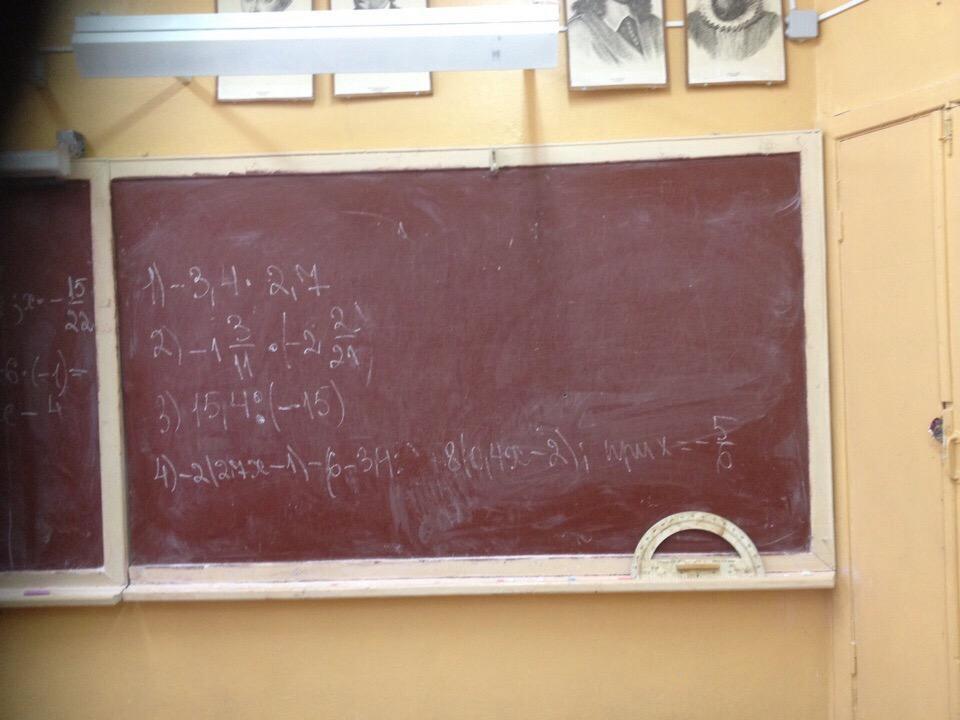 3x · - 15/22
-6·(-1)=
- 4
1) -3,4 · 2,7
2) -1 3/11 · (-2 2/21)
3) 15,4 : (-15)
4) -2(2,7x-1)-(6-3,4 8(0,4x-2); при x = -5/6